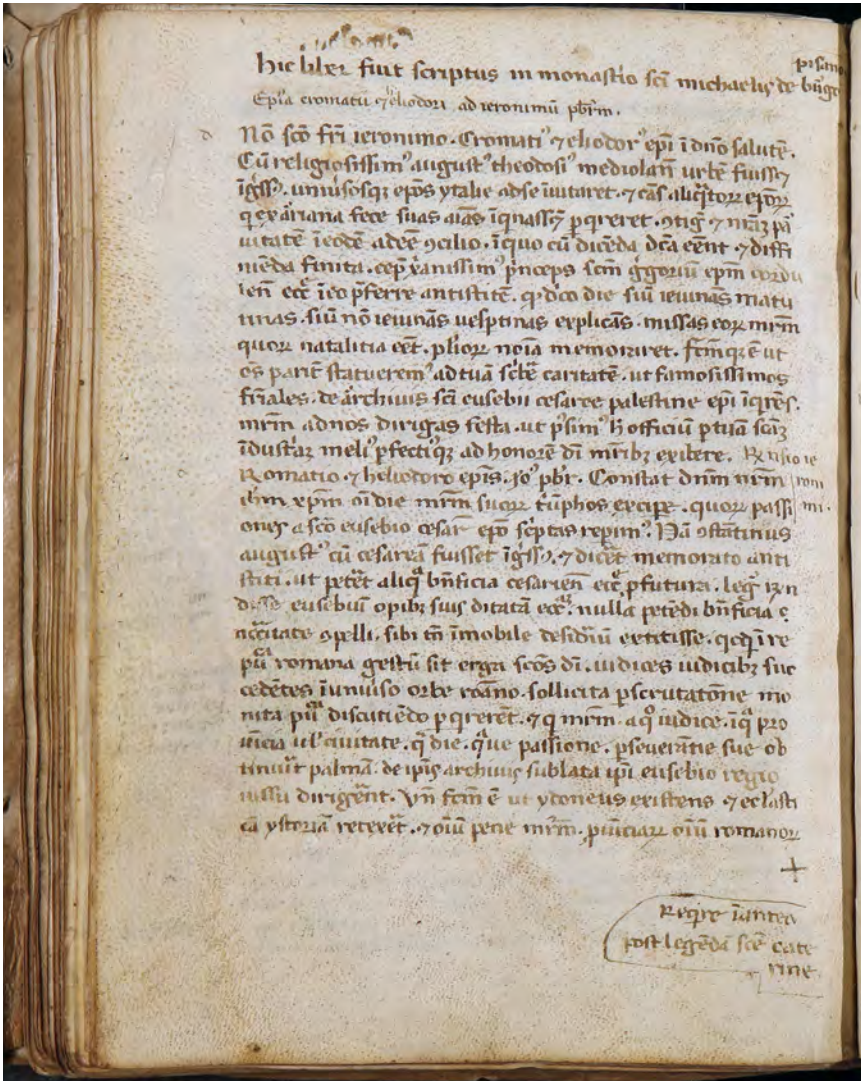 hic liber fuit scriptus in monastio sci michaelis de burgo
pisano
Epl'a cromatii ⁊ eliodori ad ieronimū pbr̄m.
Nō scō fr̄i ieronimo. Cromati' ⁊ eliodor' epi ī dn̄o salutē.
Cū religiosissim' august' theodosi' mediolan̄ urbē fuiss⁊
īgss'. epōs ytalie ad se īuitaret. ⁊
q ex arriana fece suas aīas pqreret. ⁊
uitatē ī eodē adeē ↄcilio. ī quo cū dicēda dc̄a eēnt ⁊ diffi
niēda finita. cep̄ xanissim' pnceps scm̄ g̊goriū epm̄ cordu
ien̄ ecc̄ īeo p̄ferre antistitē. die siū ieiunās matu
tinas. siū nō ieiunās uesptinas explicās. missas eoꝝ mr̄m
quoꝝ natalitia eēt. plioꝝ noīa memoraret. fc̄mqꝫ ē ut
os parit̄ statuerem' ad tuā scbē caritatē. ut famosissimos
fr̄iales. de archiuis sc̄i eusebii cesaree palestine epi īqres.
mr̄m ad nos dirigas festa. ut psim' h officiū p tuā scāꝫ
īdustiāꝫ meli' pfecti'qꝫ ad honorē dī mr̄ibꝫ exibere. Rn̄sio ie
Romatio ⁊ heliodoro epīs. Jo' pbr. Constat dnm̄ nrm̄ roni
ihm̄ xpm̄ oī die mr̄m suoꝝ tūphos excipe. quoꝝ passi mi.
ones a scō eusebio cesar̄ epo sc̄ptas repim'. Nā ↄstātinus
august' cū cesareā fuisset īgss'. ⁊ dicēt memorato anti
stiti. ut petēt aliq bn̄ficia cesarien̄ ecc̄ pfutura. leg̊ rn̄
disse eusebiū opibꝫ suis ditatā ecc̄. nulla petēdi bn̄ficia
necc̄itate ↄpelli. sibi tn̄ īmobile desideriū extitisse. qcqd ī re
pu romana gestū sit erga scōs dī. iudices iudicibꝫ suc
cedētes ī uniuso orbe roāno. sollicita pscrutatōne mo
nita pu discutiēdo pqrerēt. ⁊ q mr̄m. a q iudice. ī q pro
uīcia ul' ciuitate. q die. q ue passione. pseuerātie sue ob
tinuīt palmā. de ipīs archiuis sublata ipī eusebio regio
iussu dirigēnt. Vn̄ fc̄m ē ut ydoneus existens ⁊ ecl'asti
cā ystoriā retexēt. ⁊ oīū pene mr̄m. puīciaꝝ oīū romanoꝝ
+
Reqre īantea
post legēdā sce cate
rine